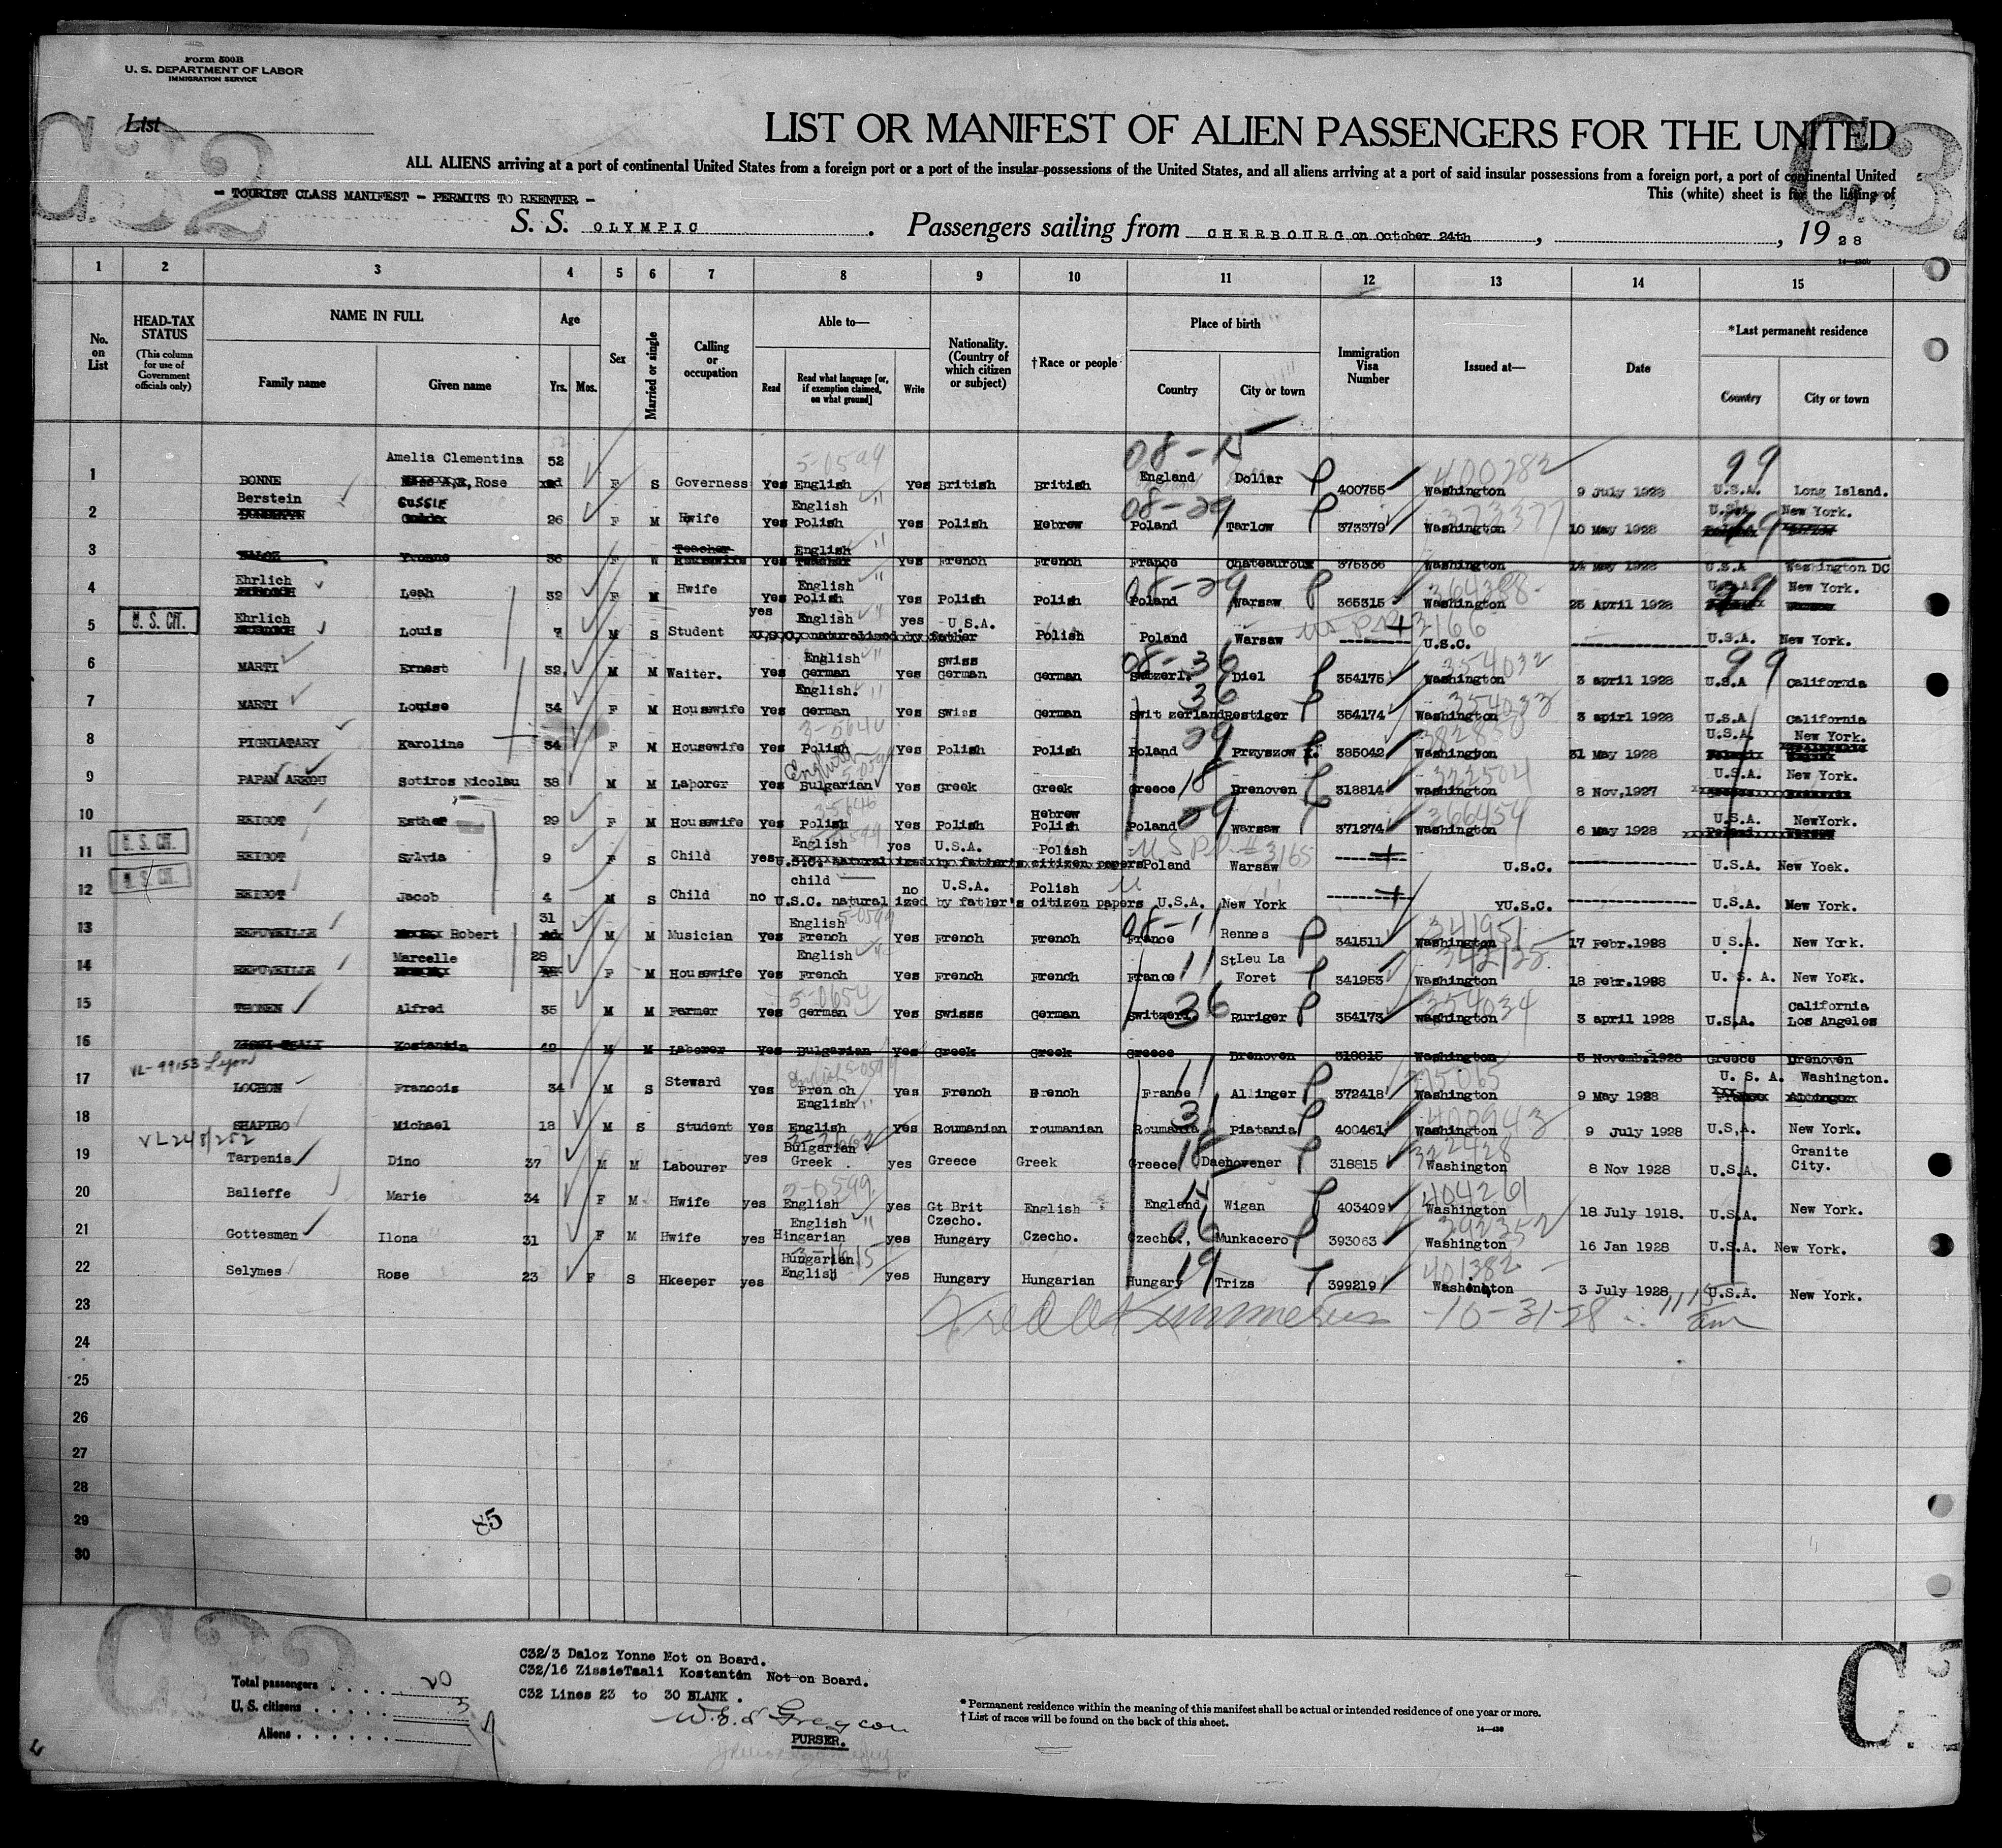 Form 500B
U. S. DEPARTMENT OF LABOR
IMMIGRATION SERVICE
C32
List
LIST OR MANIFEST OF ALIEN PASSENGERS FOR THE UNITED
ALL ALIENS arriving at a port of continental United States from a foreign port or a port of the insular possessions of the United States, and all aliens arriving at a port of said insular possessions from a foreign port, a port of continental United
This (white) sheet is for the listing of
- TOURIST CLASS MANIFEST - PERMITS TO REENTER -
S. S. OLYMPIC . Passengers sailing from CHERBOURG on October 24th , , 19 28
1 2 3 4 5 6 7 8 9 10 11 12 13 14 15
No. on List
HEAD-TAX STATUS (This column for use of Government officials only)
NAME IN FULL
Family name Given name
Age Yrs. Mos.
Sex
Married or single
Calling or occupation
Able to—
Read Read what language [or, if exemption claimed, on what ground] Write
Nationality. (Country of which citizen or subject)
†Race or people
Place of birth
Country City or town
Immigration Visa Number
Issued at—
Date
*Last permanent residence
Country City or town
Amelia Clementina 52 5-0599 08-15 400282 99
1 BONNE Rose F S Governess Yes English Yes British British England Dollar 400755 Washington 9 July 1928 U.S.A. Long Island.
Berstein GUSSIE English 08-29 373377 U.S.A. New York.
2 26 F M Hwife Yes Polish Yes Polish Hebrew Poland Tarlow 373379 Washington 10 May 1928
Teacher English
3 DALOZ Yvonne 36 F W Housewife Yes Yes French French France Chateauroux 375336 Washington 14 May 1928 U.S.A Washington DC
Ehrlich English 08-29 364388 U.S.A. New York.
4 Leah 32 F M Hwife Yes Polish Yes Polish Polish Poland Warsaw 365315 Washington 25 April 1928
Ehrlich yes English yes U.S.A.
5 U. S. CIT. Louis 7 M S Student U.S.C. naturalized by father Polish Poland Warsaw U.S.C. U.S.A. New York.
English Swiss 08-36 354032 99
6 MARTI Ernest 32 M M Waiter. Yes German Yes German German Switzerl. Diel 354175 Washington 3 april 1928 U.S.A California
English. 36 354033
7 MARTI Louise 34 F M Housewife Yes German Yes Swiss German Switzerland Restiger 354174 Washington 3 apirl 1928 U.S.A California
3-5646 29 382850 U.S.A. New York.
8 PIGNIATARY Karoline 34 F M Housewife Yes Polish Yes Polish Polish Poland Przyszow 385042 Washington 31 May 1928
English 18 322504 U.S.A. New York.
9 PAPAM ARKOU Sotiros Nicolau 38 M M Laborer Yes Bulgarian Yes Greek Greek Greece Drenoven 318814 Washington 8 Nov,1927
3-5646 Hebrew 29 366454 U.S.A. NewYork.
10 REIGOT Esther 29 F M Housewife Yes Polish Yes Polish Polish Poland Warsaw 371274 Washington 6 May 1928
U. S. CIT. English yes U.S.A. Polish
11 REIGOT Sylvia 9 F S Child yes U.S.C. naturalized by father's citizen papers Poland Warsaw U.S.C. U.S.A. New Yoek.
U. S. CIT. child no U.S.A. Polish
12 REIGOT Jacob 4 M S Child no U.S.C. naturalized by father's citizen papers U.S.A. New York YU.S.C. U.S.A. New York.
31 English 5-0599 08-11 341951
13 REFUVEILLE Robert M M Musician Yes French Yes French French France Rennes 341511 Washington 17 Febr.1928 U S.A. New York.
Marcelle 28 English 11 342125 StLeu La
14 REFUVEILLE F M Housewife Yes French Yes French French France Foret 341953 Washington 18 Febr.1928 U. S. A. New York.
5-0654 36 354034 California
15 THONEN Alfred 35 M M Farmer Yes German Yes Swisss German Switzerl. Ruriger 354173 Washington 3 april 1928 U.S.A. Los Angeles
16 ZISSI TSALI Kostantin 48 M M Laborer Yes Bulgarian Yes Greek Greek Greece Drenoven 318815 Washington 3 Novemb.1928 Greece Drenoven
VL-99153 Lyon 11 375065 U. S. A. Washington.
17 LOCHON Francois 34 M S Steward Yes French Yes French French France Allinger 372418 Washington 9 May 1928
English 31 400943
18 SHAPIRO Michael 18 M S Student Yes English Yes Roumanian roumanian Roumania Piatania 400461 Washington 9 July 1928 U.S,A. New York.
VL248/252 Bulgarian 18 322428 Granite
19 Tarpenis Dino 37 M M Labourer yes Greek yes Greece Greek Greece Daehovener 318815 Washington 8 Nov 1928 U.S.A. City.
5-0599 404261
20 Balieffe Marie 34 F M Hwife yes English yes Gt Brit English England Wigan 403409 Washington 18 July 1918. U.S.A. New York.
English Czecho. 06 392352
21 Gottesman Ilona 31 F M Hwife yes Hingarian yes Hungary Czecho. Czecho., Munkacero 393063 Washington 16 Jan 1928 U.S.A. New York.
Hungarian 19 401382
22 Selymes Rose 23 F S Hkeeper yes English yes Hungary Hungarian Hungary Trizs 399219 Washington 3 July 1928 U.S.A. New York.
23 10-31-28 1115 am
24
25
26
27
28
29 85
30
C32
C32/3 Daloz Yonne Not on Board.
C32/16 ZissieTsali Kostantén Not on Board.
C32 Lines 23 to 30 BLANK .
Total passengers . . . . 20
U. S. citizens . . . . . 3
Aliens . . . . . .
PURSER.
* Permanent residence within the meaning of this manifest shall be actual or intended residence of one year or more.
† List of races will be found on the back of this sheet.
14—430